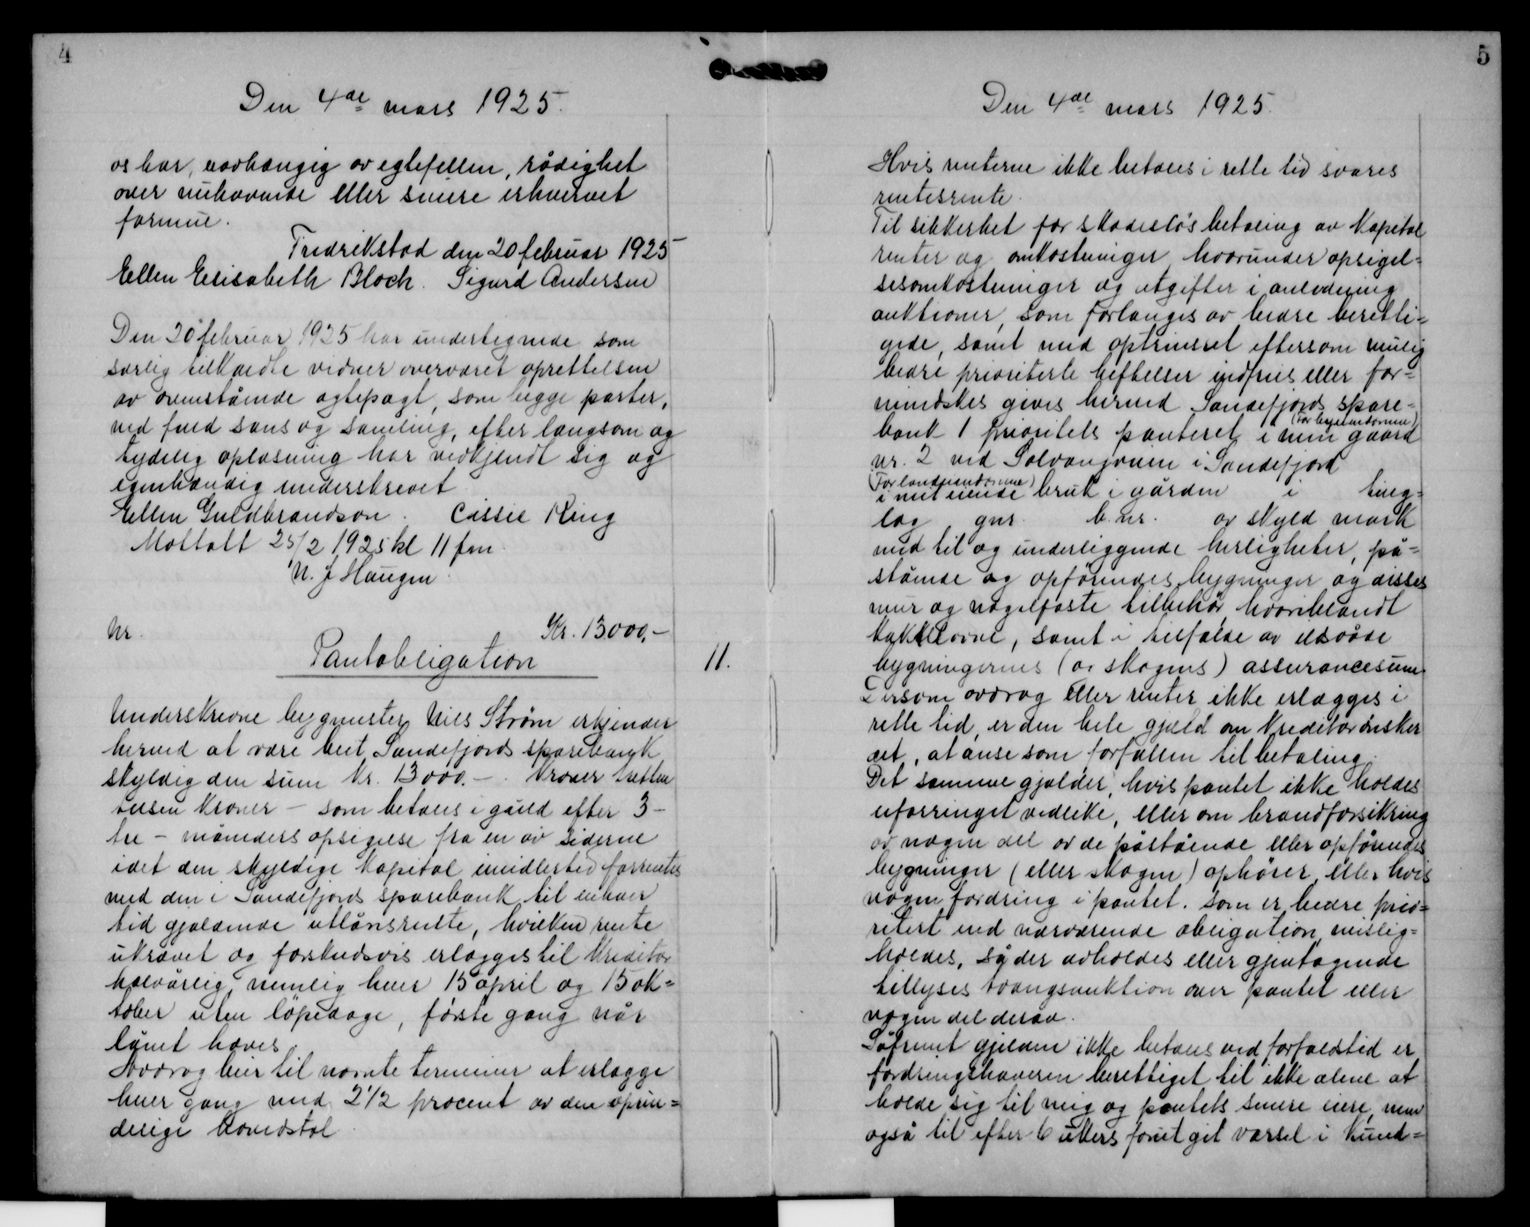 4
Den 4de mars 1925.
os har, uavhængig av egtefellen, rådighet
over nuhavende eller senere erhvervet
formue.
Fredrikstad den 20 februar 1925
Ellen Elisabeth Bloch. Sigurd Andersen
Den 20 februar 1925 har undertegnede som
særlig tilkaldte vidner overværet oprettelsen
av ovenstående egtepagt, som begge parter,
ved fuld sans og samling, efter langsom og
tydelig oplæsning har vedkjendt sig og
egenhændig underskrevet
Ellen Guldbrandsen. Cissie Ring
Mottatt 25/2 1925 kl 11 fm.
N. J Haugen.
Nr. Kr. 13000,-
Pantobligation
11.
Underskrevne bygmester Nils Strøm erkjender
herved at være blit Sandefjords sparebank
skyldig den sum kr. 13000.- . kroner tretten
tusen kroner - som betales i guld efter 3-
tre - måneders opsigelse fra en av siderne
idet den skyldige kapital imidlertid forrentes
med den i Sandefjords sparebank til enhver
tid gjældende utlånsrente, hvilken rente
ukrævet og forskudsvis erlægges til kreditor
halvårlig, nemlig hver 15 april og 15 ok=
tober uten løpedage, første gang når
lånet hæves.
Avdrag blir til nævnte terminer at erlægge
hver gang med 2 1/2 procent av den oprin=
delige hovedstol.
5
Den 4de mars 1925.
Hvis renterne ikke betales i rette tid svares
rentesrente.
Til sikkerhet for skadesløs betaling av kapital
renter og omkostninger hvorunder opsigel=
sesomkostninger og utgifter i anledning
auktioner, som forlanges av bedre beretti=
gede, samt med optrinsret eftersom mulig
bedre prioriterte heftelser indfries eller for=
mindskes gives herved Sandefjords spare=
(For byeiendomme)
bank 1 prioritets panteret i min gaard
nr. 2 ved Solvangveien i Sandefjord
(For landeiendomme)
i mit eiende bruk i gården i ting=
lag gnr. b.nr. av skyld mark
med til og underliggende herligheter, på=
stående og opførendes bygninger og disses
mur og nagelfaste tilbehør, hvoriblandt
kakkelovne, samt i tilfælde av ildsvåde
bygningernes (og skogens) assurancesum.
Dersom avdrag eller renter ikke erlægges i
rette tid, er den hele gjæld om kreditor ønsker
det, at anse som forfallen til betaling.
Det samme gjælder, hvis pantet ikke holdes
uforringet vedlike, eller om brandforsikring
av nogen del av de påstående eller opførendes
bygninger (eller skogen) ophører, eller hvis
nogen fordring i pantet. som er bedre prio=
ritert end nærværende obligation, mislig=
holdes, så der avholdes eller gjentagende
tillyses tvangsauktion over pantet eller
nogen del derav.
Såfremt gjelden ikke betales ved forfaldstid er
fordringshaveren berettiget til ikke alene at
holde sig til mig og pantets senere eiere, men
også til efter 6 ukers forut git varsel i kund=